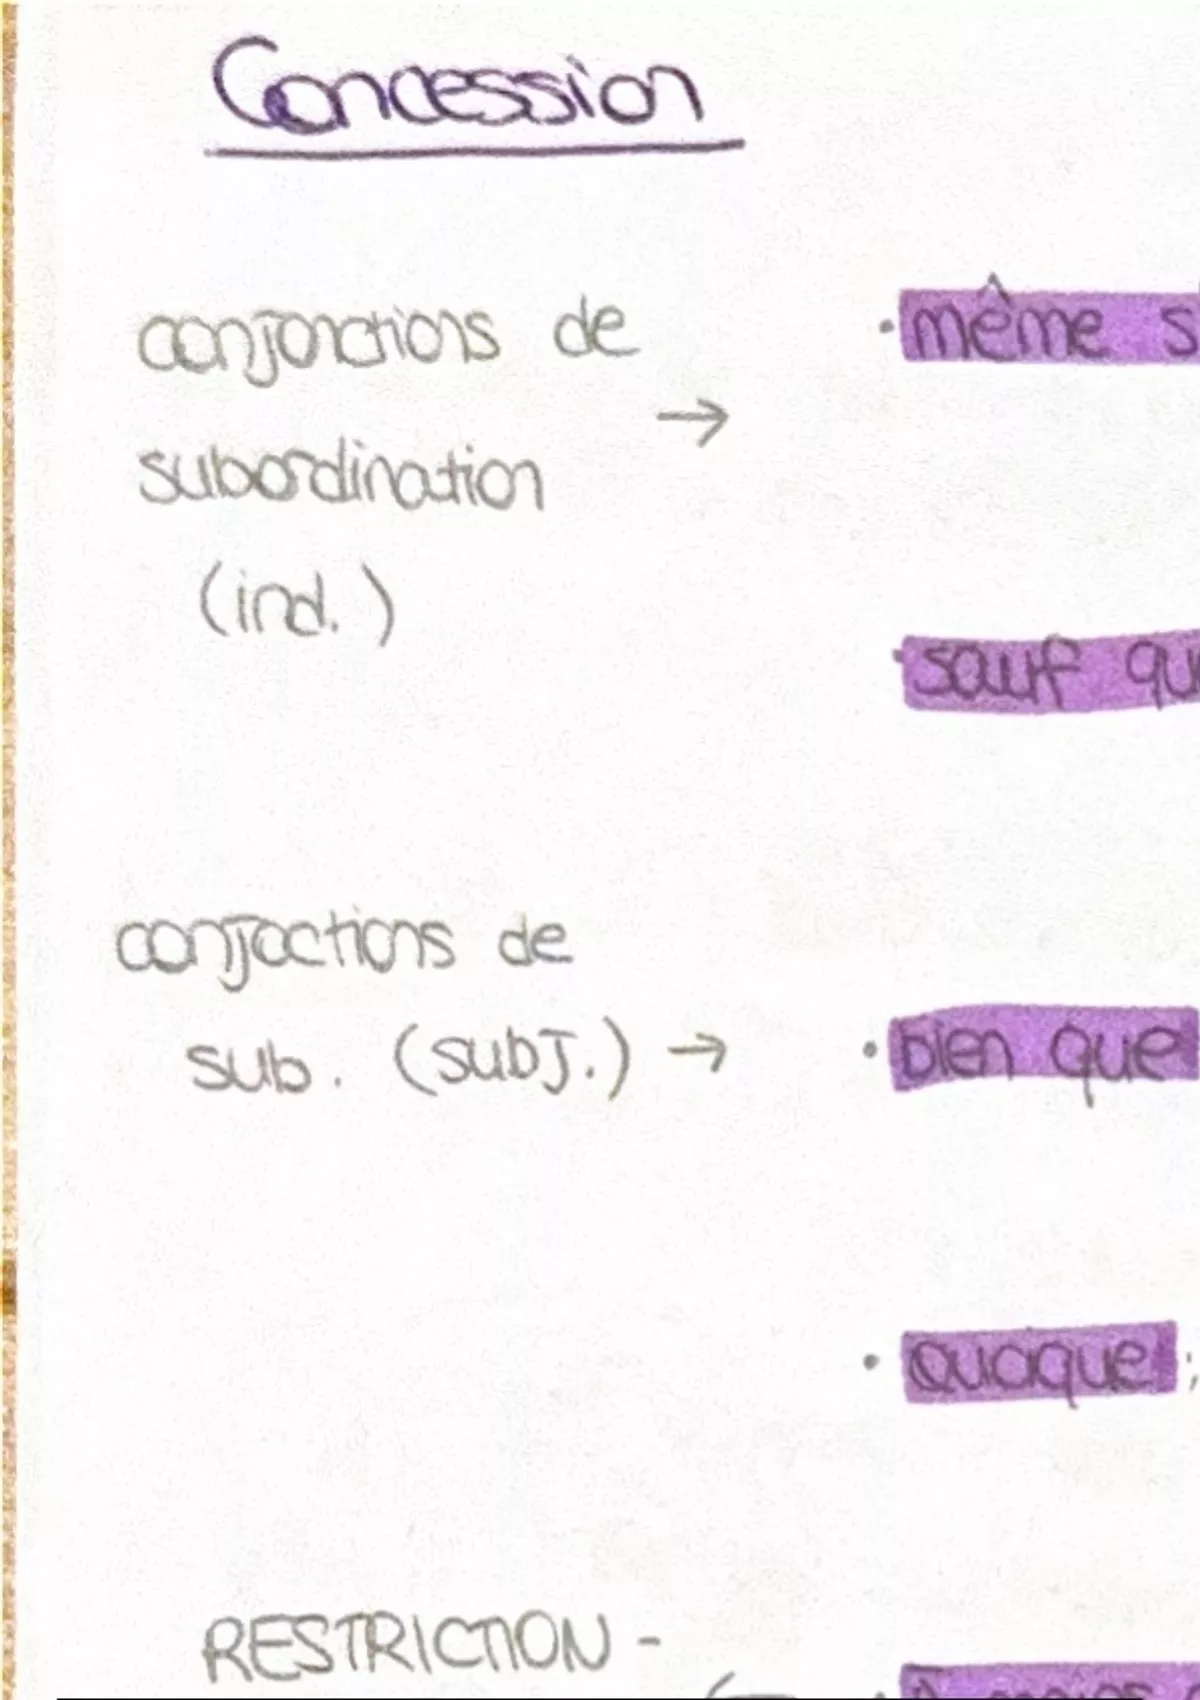 Concession
conjonctions de
→
· même s
subordination
(ind.)
· sauf que
conjoctions de
sub. (subj.) → · bien que
· quoique ;
RESTRICTION -